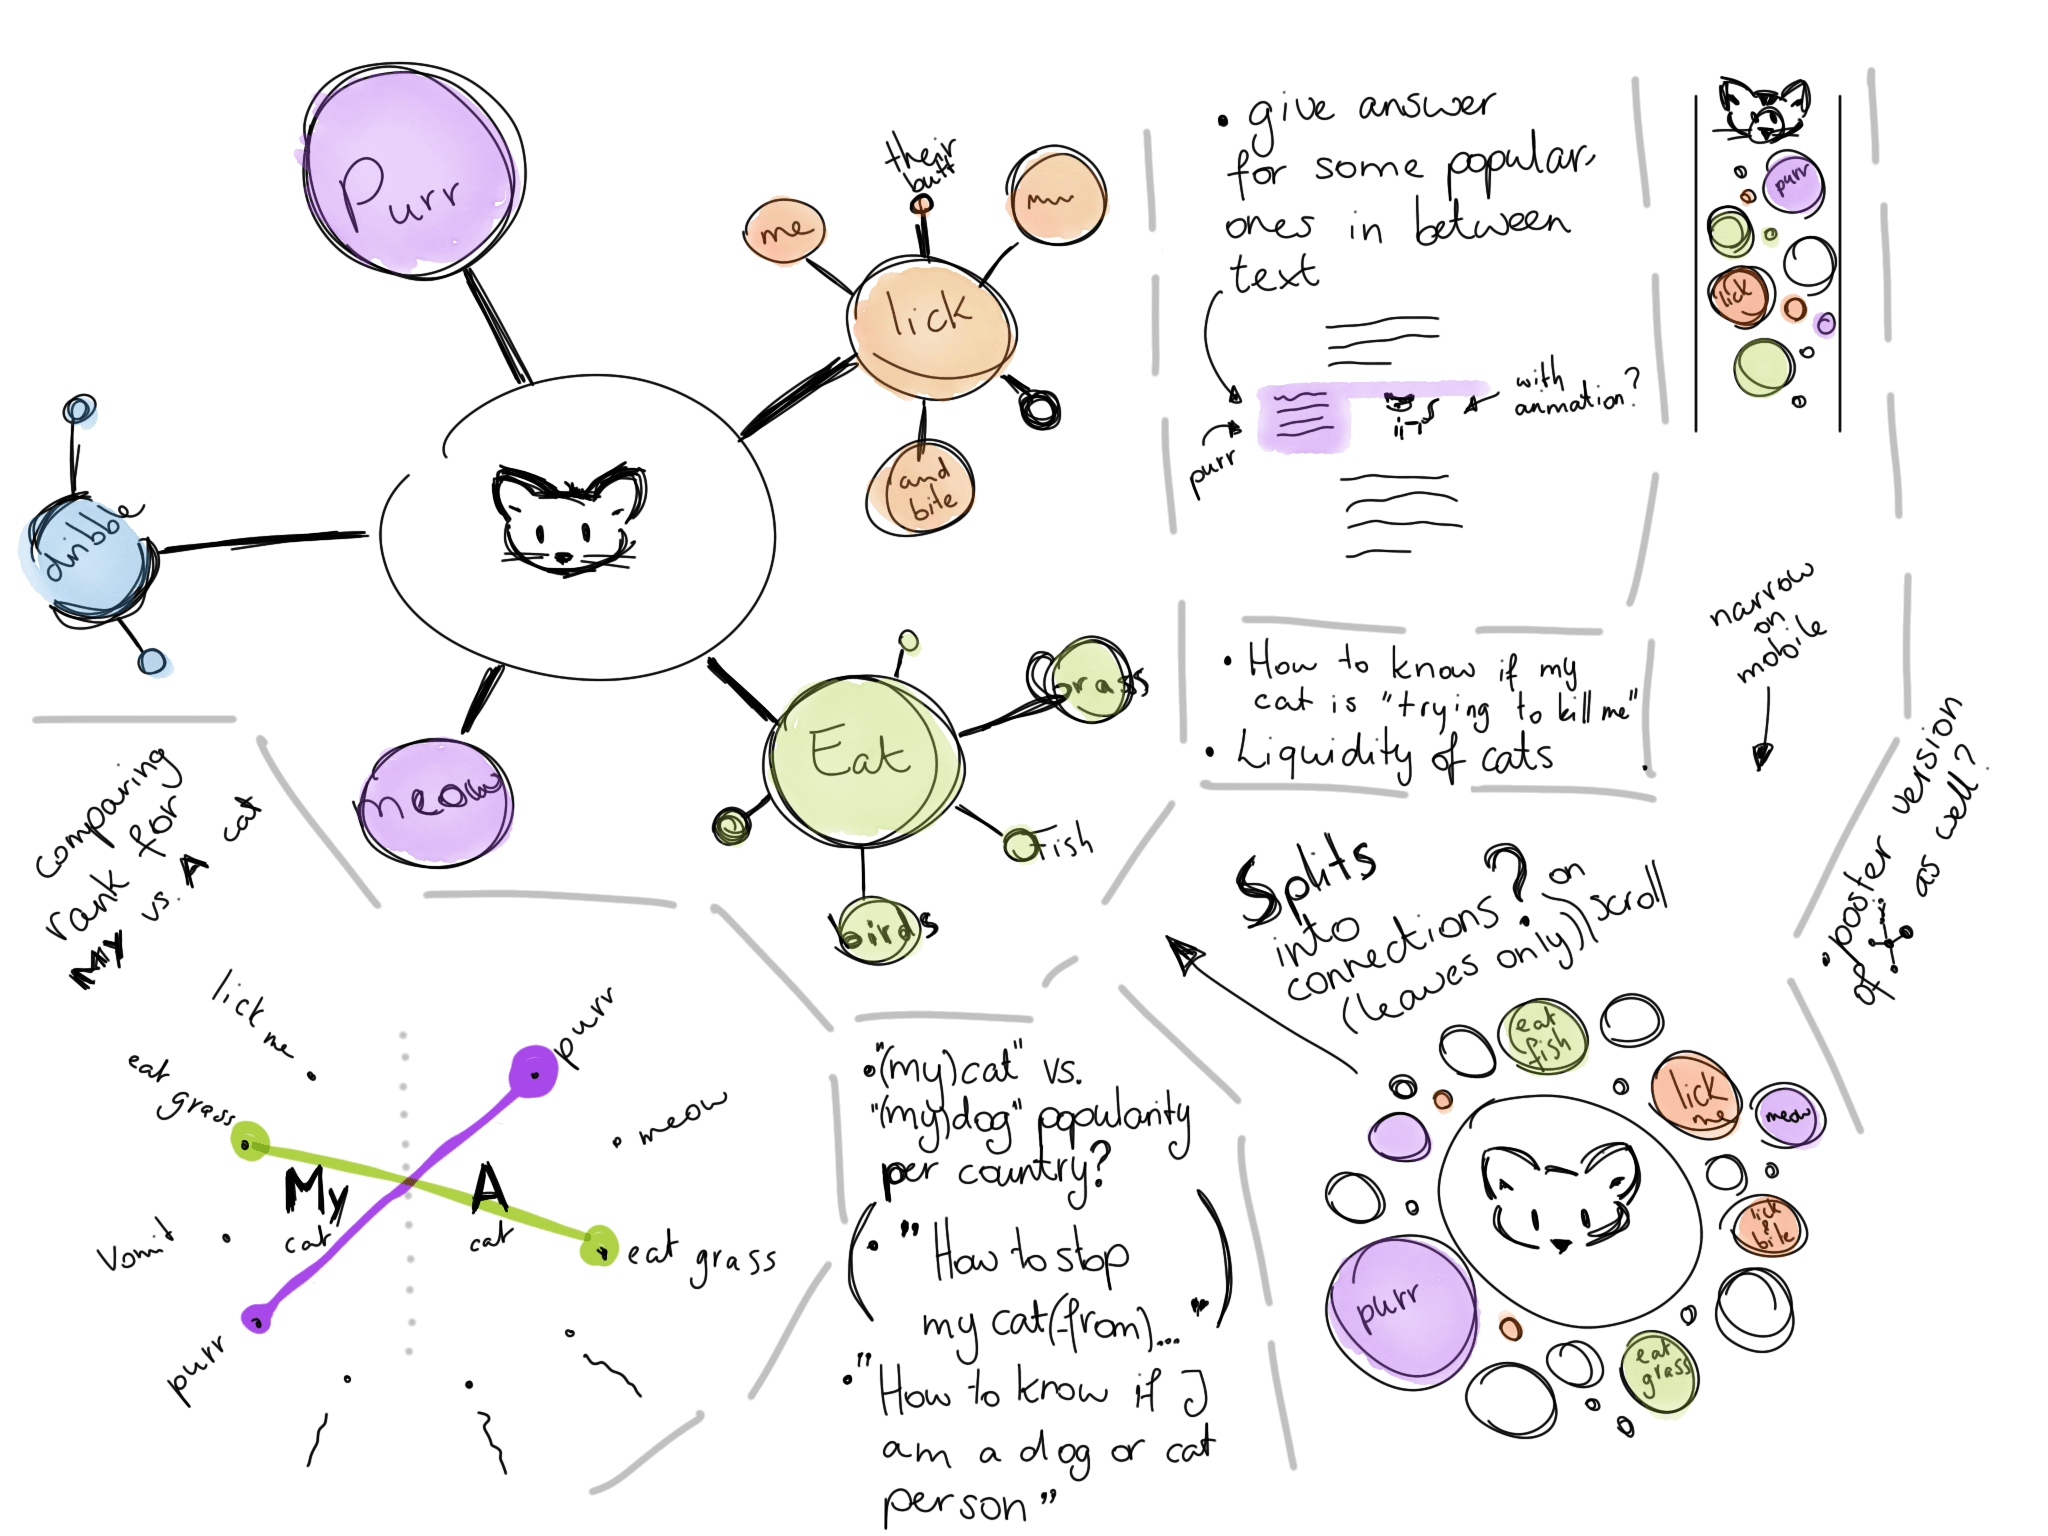 Purr
their
butt
me
lick
and
bite
dribble
meow
Eat
grass
fish
birds
• give answer
for some popular
ones in between
text
with
anmation?
purr
purr
lick
narrow
on
mobile
• How to know if my
cat is "trying to kill me"
• Liquidity of cats
• poster version
of
as well?
comparing
rank for
My vs. A cat
lick me
eat
grass
Vomit
purr
My
cat
A
cat
purr
meow
eat grass
• "(my)cat" vs.
"(my)dog" popularity
per country?
( • "How to stop
my cat (from)..." )
• "How to know if I
am a dog or cat
person"
Splits
into
connections?
(leaves only)
on
scroll
eat
fish
lick
me
meow
lick
&
bite
purr
eat
grass